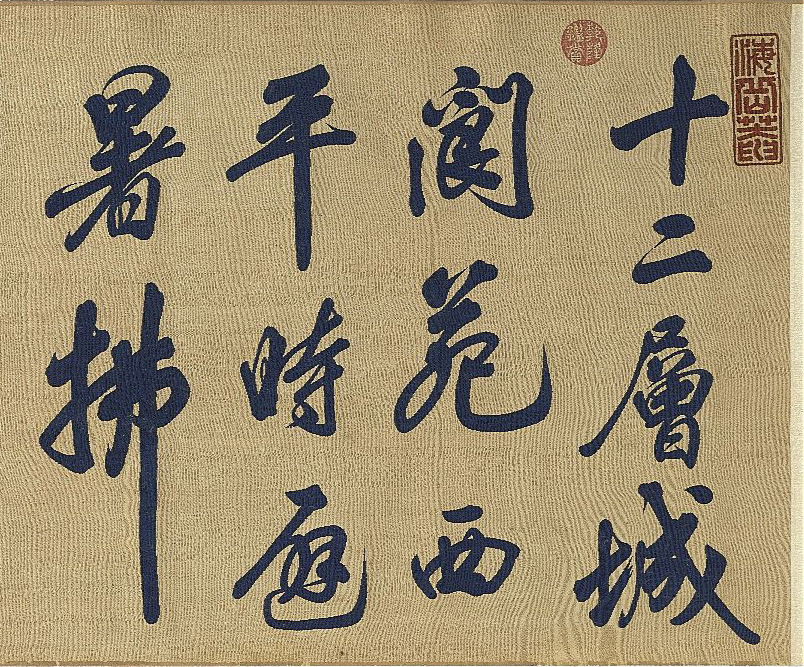 十二層城
閬苑西
平時避
暑拂